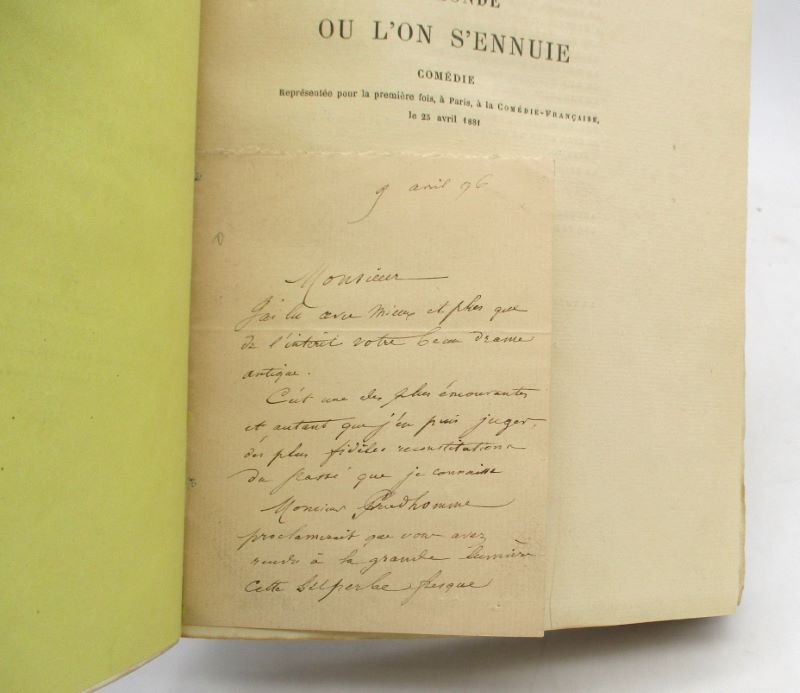 ONDE
OU L'ON S'ENNUIE
COMÉDIE
Représentée pour la première fois, à Paris, à la COMÉDIE-FRANÇAISE,
le 25 avril 1881
9 avril 96
Monsieur
J'ai lu avec mieux et plus que
de l'intérêt votre beau drame
antique.
C'est une des plus émouvantes
et autant que j'en puis juger,
des plus fidèles reconstitutions
du passé que je connaisse
Monsieur Prudhomme
proclamerait que vous avez
rendu à la grande lumière
cette superbe fresque